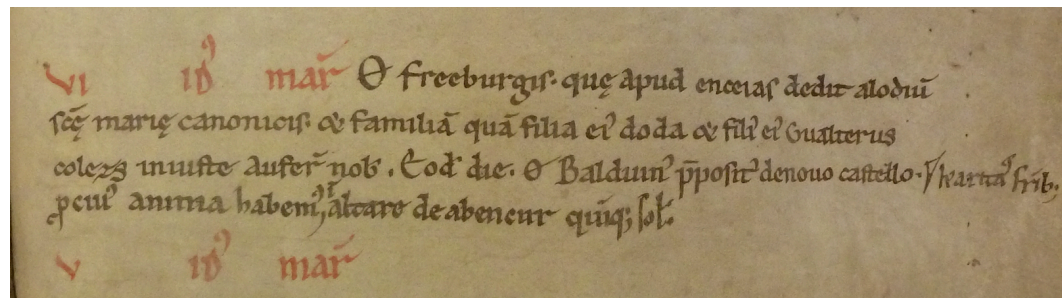 VI idꝰ mar̄ O freeburgis· quę apud enceias dedit alodiū
scę̄ marię canonicis· & familiā quā filia eiꝰ doda & filiꝰ eiꝰ Gualterus
iniuste aufer̄ nob̄· Eod̄ die· O Balduinꝰ p̄positꝰ de nouo castello· karitaꝰ fr̄ib·
ꝓ cuiꝰ anima habemꝰ altare de abeneur quīq; sol̄·
V idꝰ mar̄